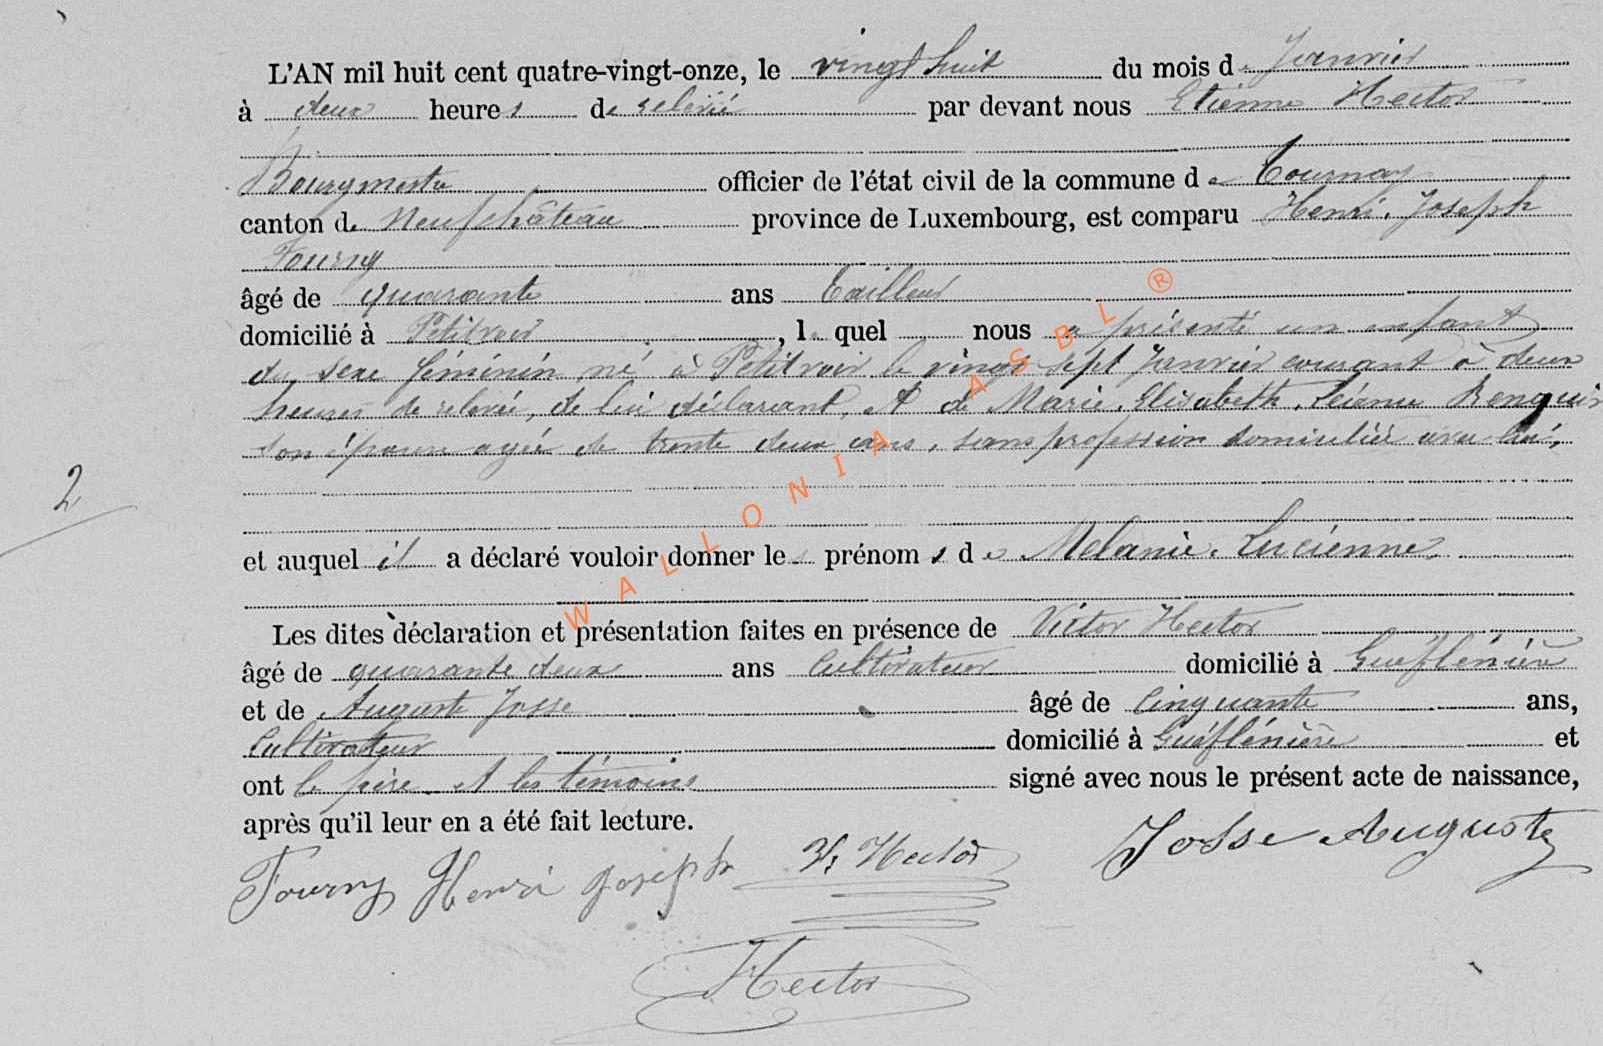 L'AN mil huit cent quatre-vingt-onze, le vingt huit du mois de Janvier
à deux heures de relevée par devant nous Etienne Hector
Bourgmestre officier de l'état civil de la commune de Tournay
canton de Neufchâteau province de Luxembourg, est comparu Henri, Joseph
Fourny
âgé de quarante ans Tailleur
domicilié à Petitvoir, le quel nous a présenté un enfant
du sexe féminin né à Petitvoir le vingt sept Janvier courant à deux
heures de relevée, de lui déclarant, et de Marie, Elisabeth, Léonie
son épouse agée de trente deux ans, sans profession domiciliée avec lui,
2
et auquel il a déclaré vouloir donner les prénoms de Mélanie, Lucienne,
Les dites déclaration et présentation faites en présence de Victor Hector
âgé de quarante deux ans Cultivateur domicilié à Gueflénière
et de Auguste Josse âgé de Cinquante ans,
Cultivateur domicilié à Guéflénière et
ont le père et les témoins signé avec nous le présent acte de naissance,
après qu'il leur en a été fait lecture.
Fourny Henri Joseph V. Hector Josse Auguste
Hector
WALLONIA ASBL ®